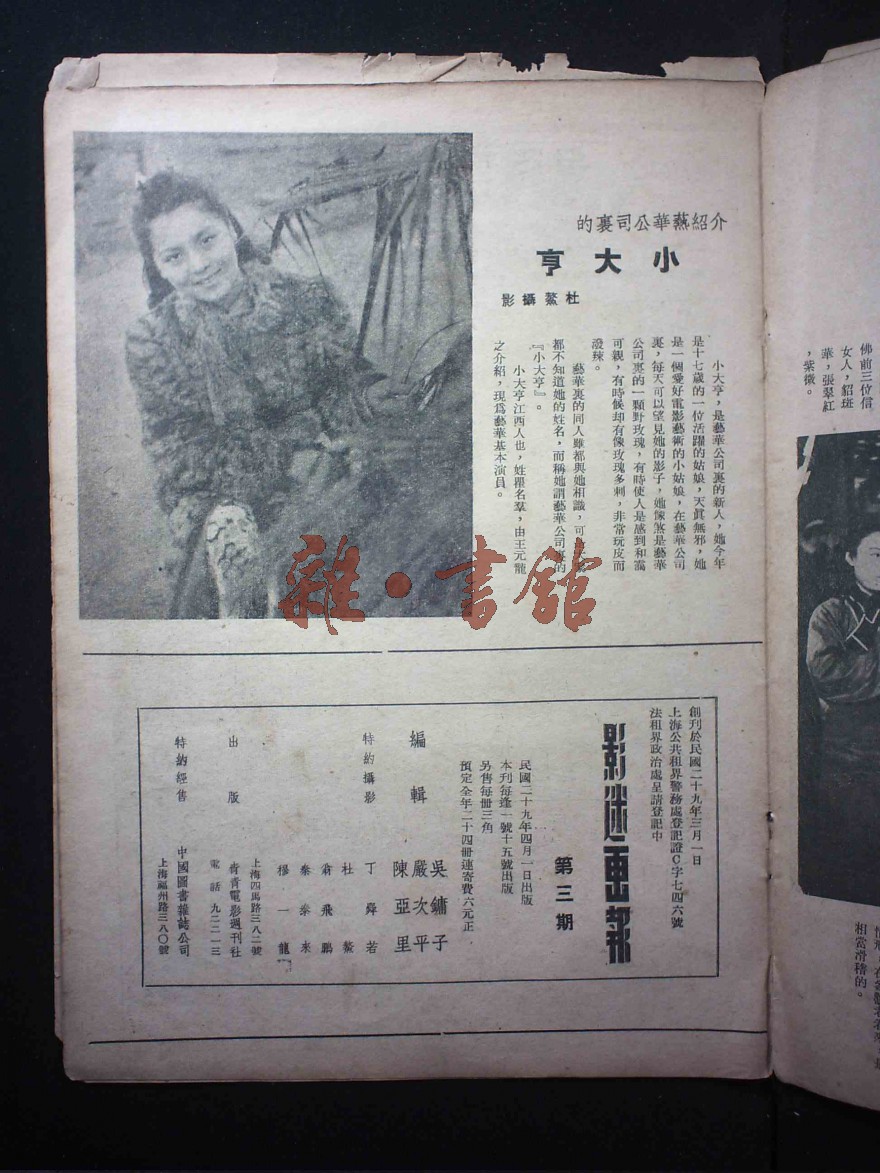 介紹藝華公司裏的
小大亨
杜鰲攝影
小大亨，是藝華公司裏的新人，她今年
是十七歲的一位活躍的姑娘，天眞無邪，她
是一個愛好電影藝術的小姑娘，在藝華公司
裏，每天可以望見她的影子，她像煞是藝華
公司裏的一顆野玫瑰，有時使人是感到和靄
可親，有時候却有像玫瑰多刺，非常玩皮而
潑辣。
藝華裏的同人雖都與她相識，可
都不知道她的姓名，而稱她謂藝華公司裏的
『小大亨』。
小大亨江西人也，姓瞿名羣，由王元龍
之介紹，現爲藝華基本演員。
雜·書館
創刊於民國二十九年三月一日
上海公共租界警務處登記證C字七四六號
法租界政治處呈請登記中
影迷画報
第三期
民國二十九年四月一日出版
本刊每逢一號十五號出版
另售每册三角
預定全年二十四册連寄費六元正
編輯
吳鏞子
嚴次平
陳亞里
特約攝影
丁舜若
杜鰲
俞飛鵬
秦泰來
穆一龍
出版
上海四馬路三八二號
靑靑電影週刊社
電話九二二一三
特約經售
中國圖書雜誌公司
上海福州路三八〇號
佛前三位信
女人，貂斑
華，張翠紅
，紫微。
相當滑稽的。